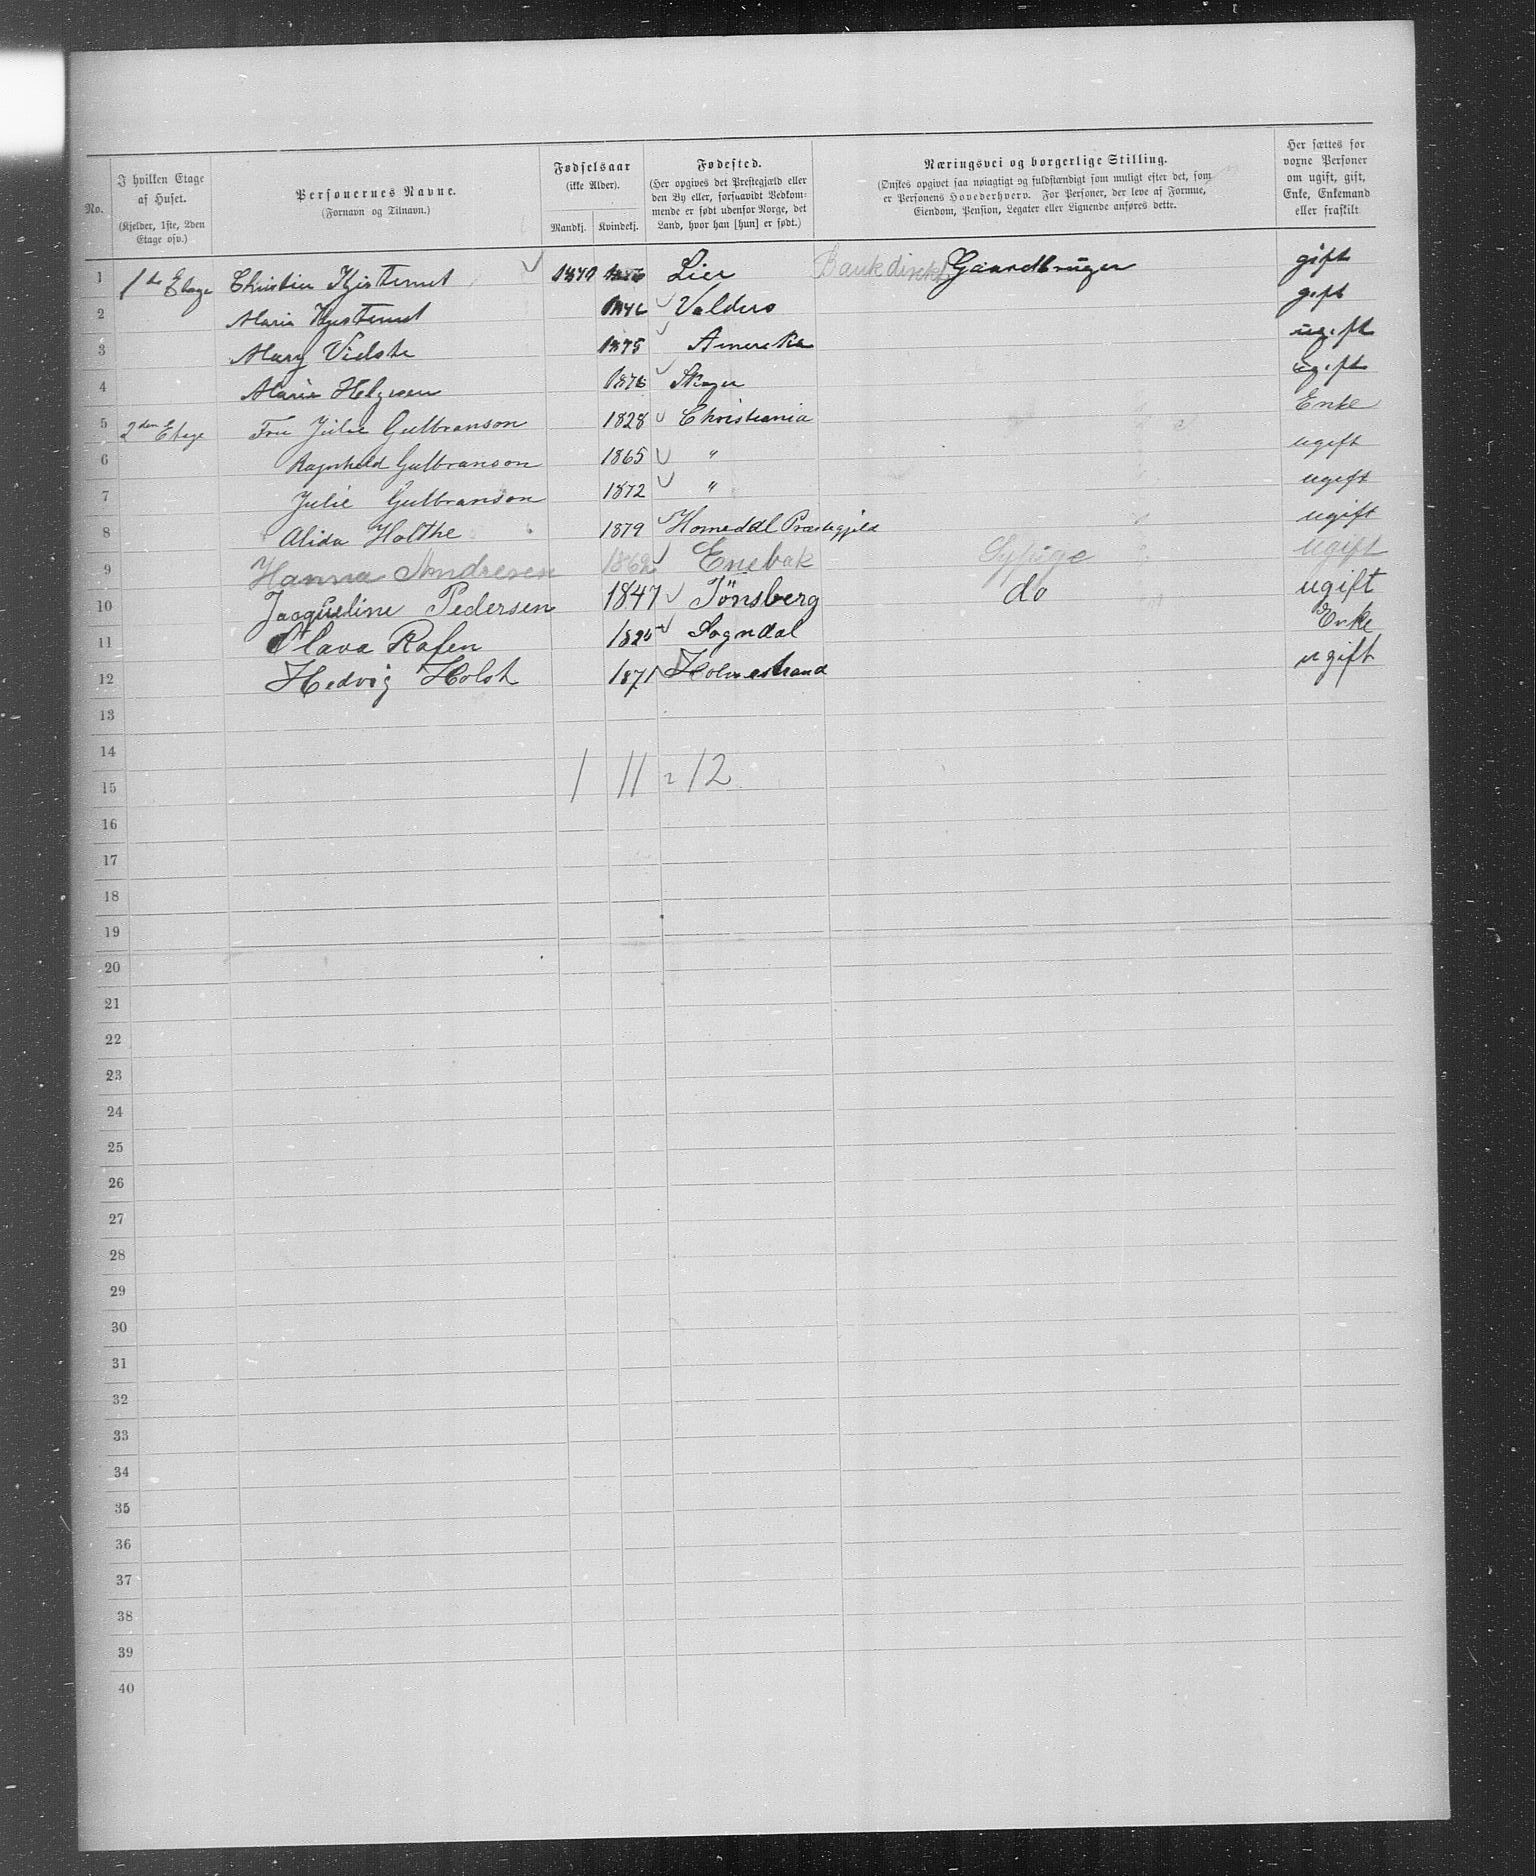 No.
I hvilken Etage af Huset. (Kjelder, 1ste, 2den Etage osv.)
Personernes Navne. (Fornavn og Tilnavn.)
Fødselsaar (ikke Alder). Mandkj. Kvindekj.
Fødested. (Her opgives det Prestegjæld eller den By eller, forsaavidt Vedkommende er født udenfor Norge, det Land, hvor han [hun] er født.)
Næringsvei og borgerlige Stilling. (Ønskes opgivet saa nøiagtigt og fuldstændigt som muligt efter det, som er Personens Hovederhverv. For Personer, der leve af Formue, Eiendom, Pension, Legater eller Lignende anføres dette.)
Her sættes for voxne Personer om ugift, gift, Enke, Enkemand eller fraskilt
1 1ste Etage Christian 1840 Lier Bankdirekt. Gaardbruger gift
2 Maria 1846 Valders gift
3 Mary 1875 Amereka ugift
4 Marie Helgesen 1876 ugift
5 2den Etage Fru Julie Gulbranson 1828 Christiania Enke
6 Ragnhild Gulbranson 1865 " ugift
7 Julie Gulbranson 1872 " ugift
8 Alida Holthe 1879 Homedal Præstegjeld ugift
9 Hanna Andresen 1862 Enebak Sypige ugift
10 Jacqueline Pedersen 1847 Tönsberg do ugift
11 Olava Rafen Sogndal Enke
12 Hedvig Holst 1871 Holmestrand ugift
13
14
15 1 11 = 12
16
17
18
19
20
21
22
23
24
25
26
27
28
29
30
31
32
33
34
35
36
37
38
39
40